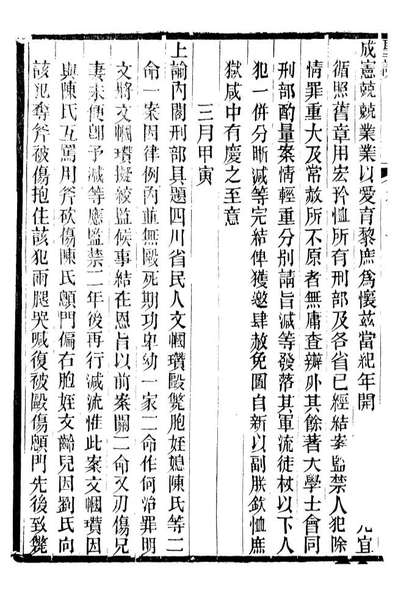 成憲兢兢業業以愛育黎庶為懷茲當紀年開 元宜
循照舊章用宏矜恤所有刑部及各省已經結案監禁人犯除
情罪重大及常赦所不原者無庸查辦外其餘著大學士會同
刑部酌量案情輕重分別請旨減等發落其軍流徒杖以下人
犯一併分晰減等完結俾獲邀肆赦免圜自新以副朕欽恤庶
獄咸中有慶之至意
三月甲寅
上諭內閣刑部具題四川省民人文幗瓚毆斃胞姪媳陳氏等二
命一案因律例內並無毆死期功卑幼一家二命作何治罪明
文將文幗瓚擬絞監候事結在恩旨以前案關二命又刃傷兄
妻未便卽予減等應監禁二年後再行減流惟此案文幗瓚因
與陳氏互罵用斧砍傷陳氏顖門偏右胞姪文齡兒因劉氏向
該犯奪斧破傷抱住該犯兩腿哭喊復被毆傷顖門先後致斃